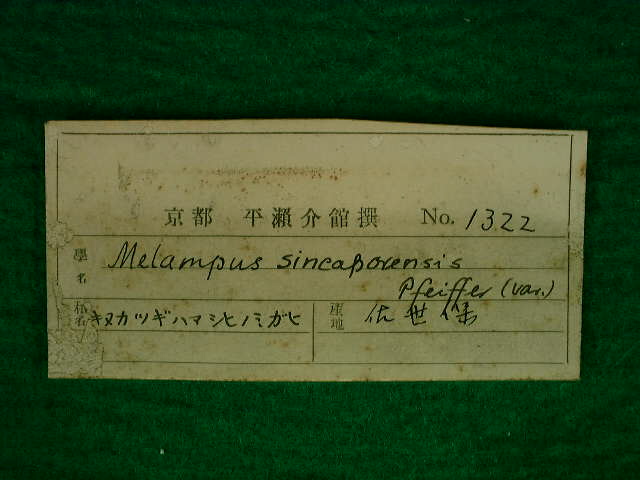 京都 平瀨介館撰 No. 1322
學名 Melampus sincaporensis
Pfeiffer (var.)
和名 キヌカツギハマシヒノミガヒ 産地 佐世保